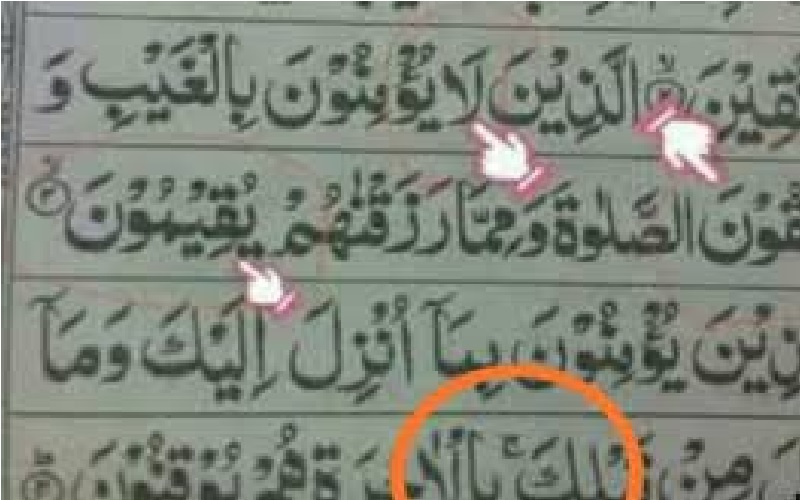 قِيْنَ ۲ الَّذِيْنَ لَا يُؤْمِنُوْنَ بِالْغَيْبِ وَ
قُوْنَ الصَّلٰوةَ وَمِمَّا رَزَقْنٰهُمْ يُقِيْمُوْنَ ۳
ذِيْنَ يُؤْمِنُوْنَ بِمَآ اُنْزِلَ اِلَيْكَ وَمَآ
مِنْ قَبْلِكَ ۚ بِالْاٰخِرَةِ هُمْ يُوْقِنُوْنَ ۴